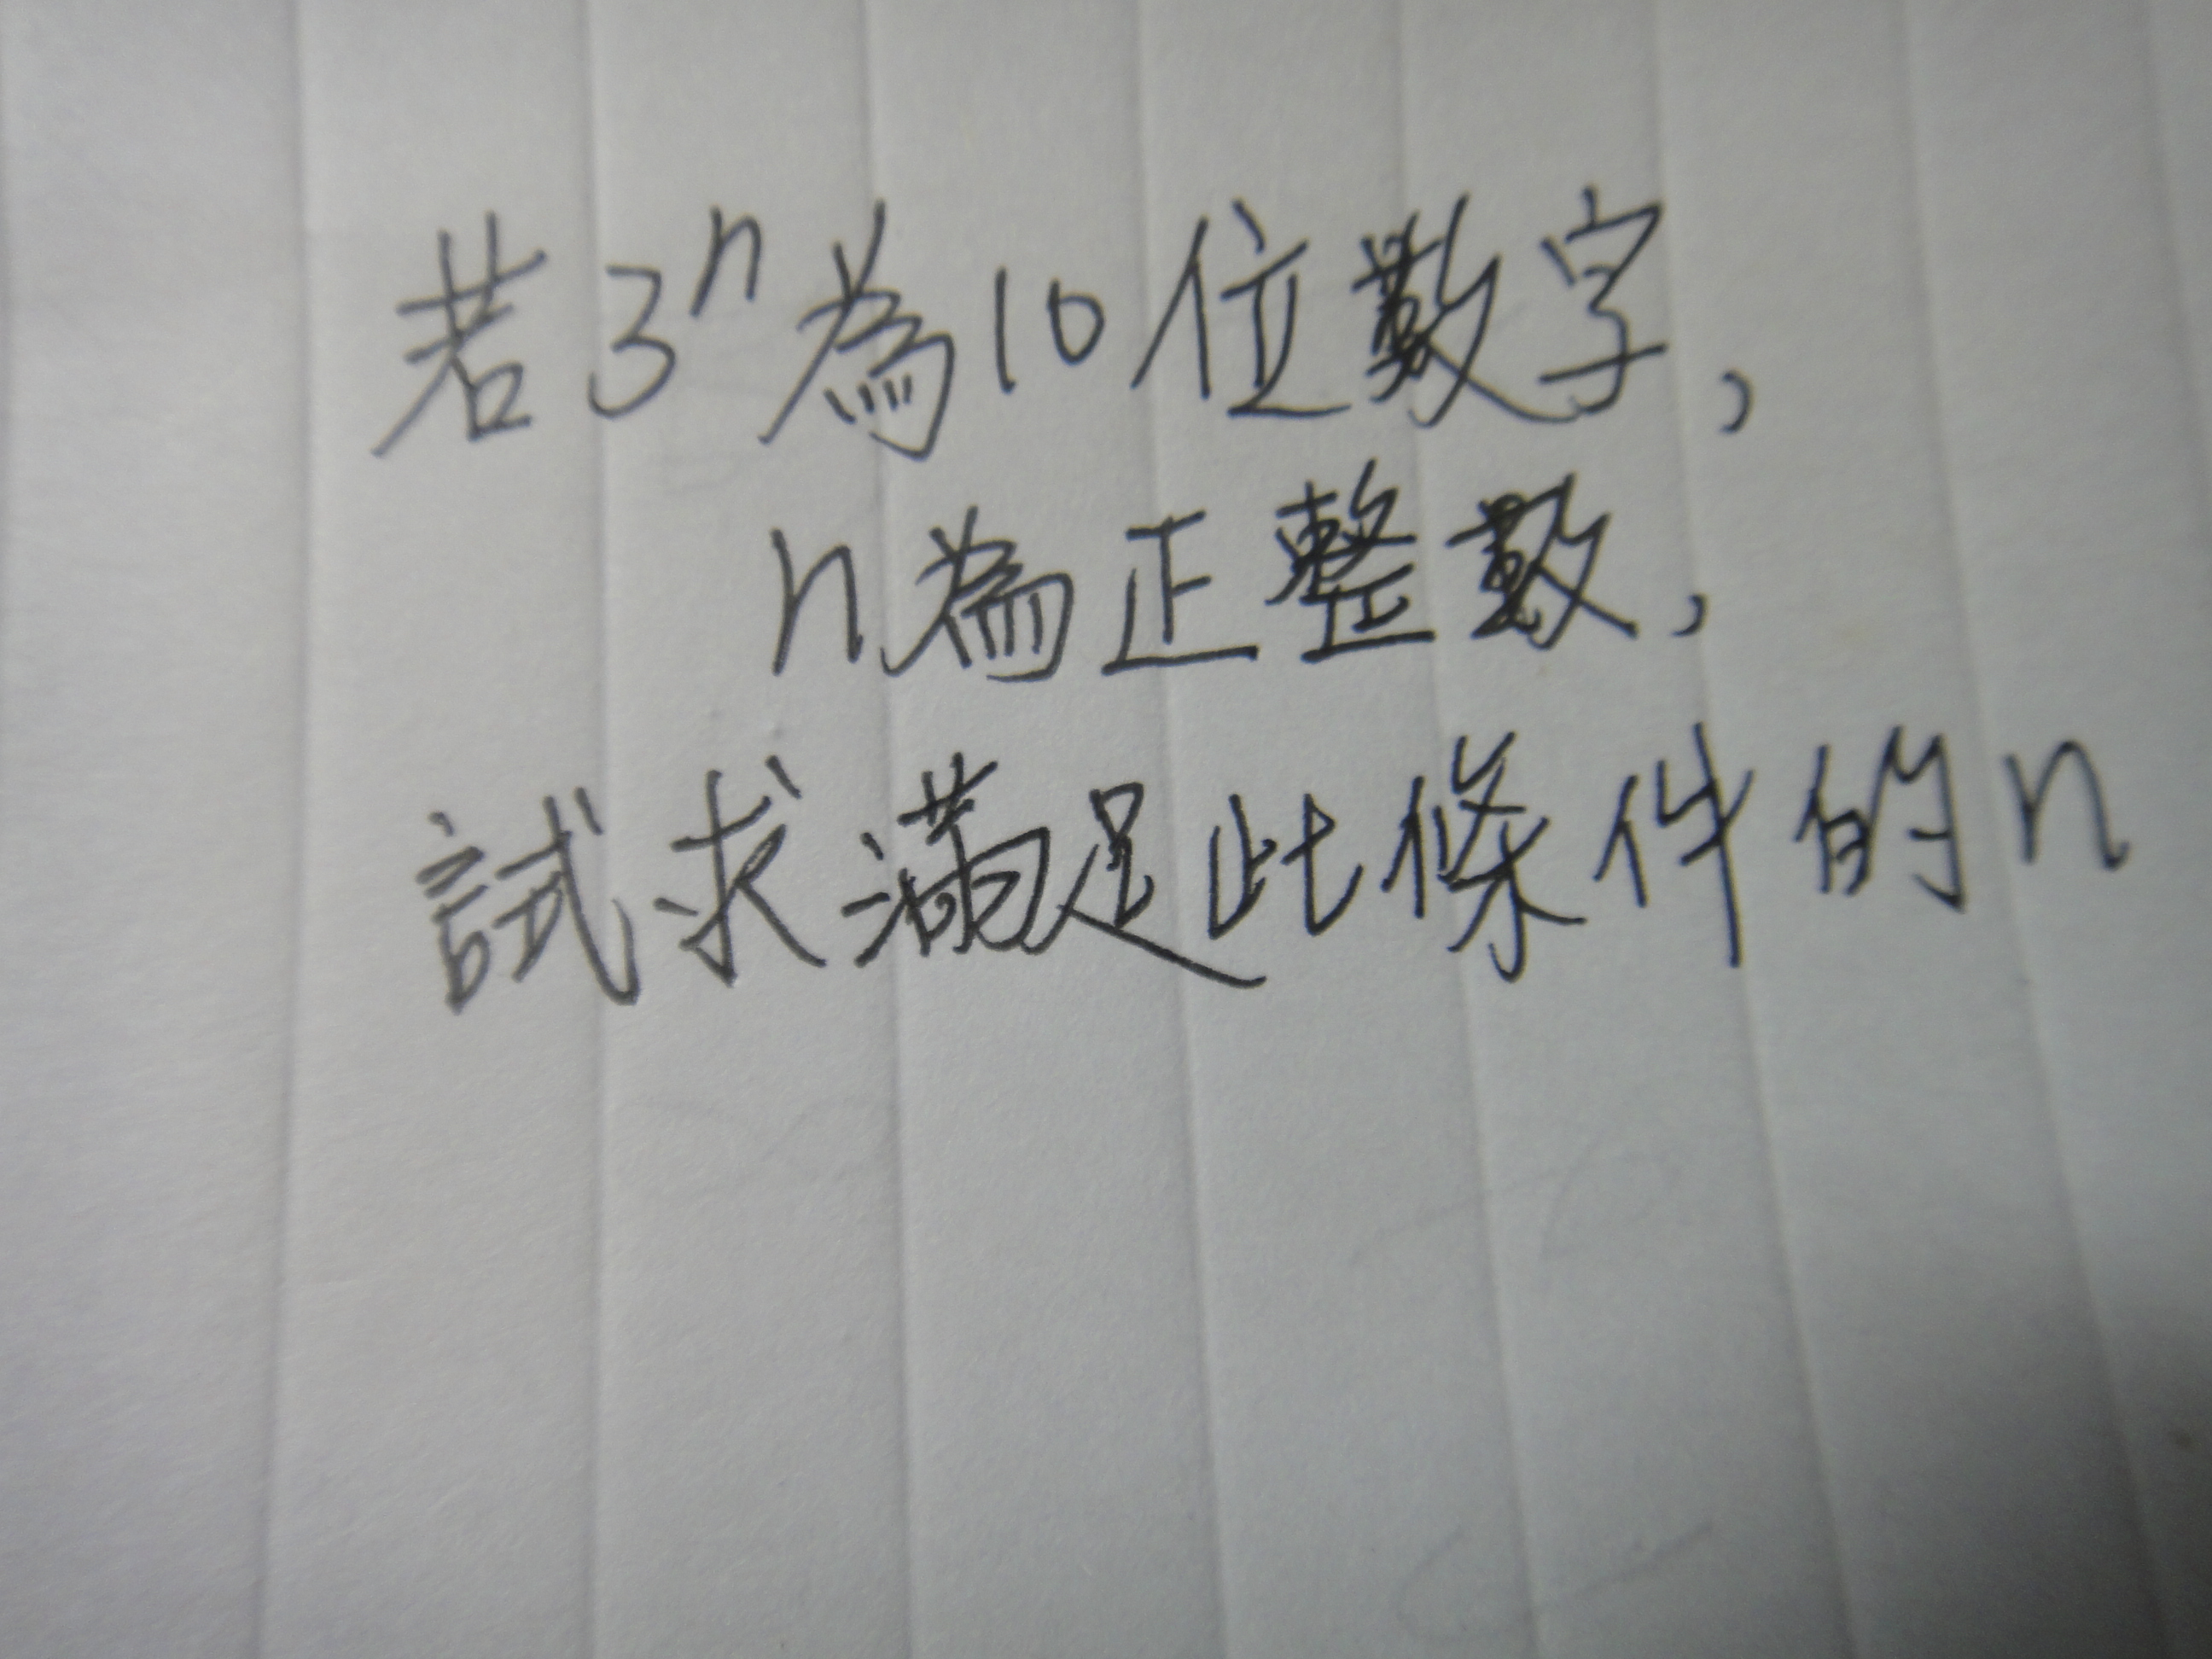 若3ⁿ為10位數字,
n為正整數,
試求滿足此條件的n